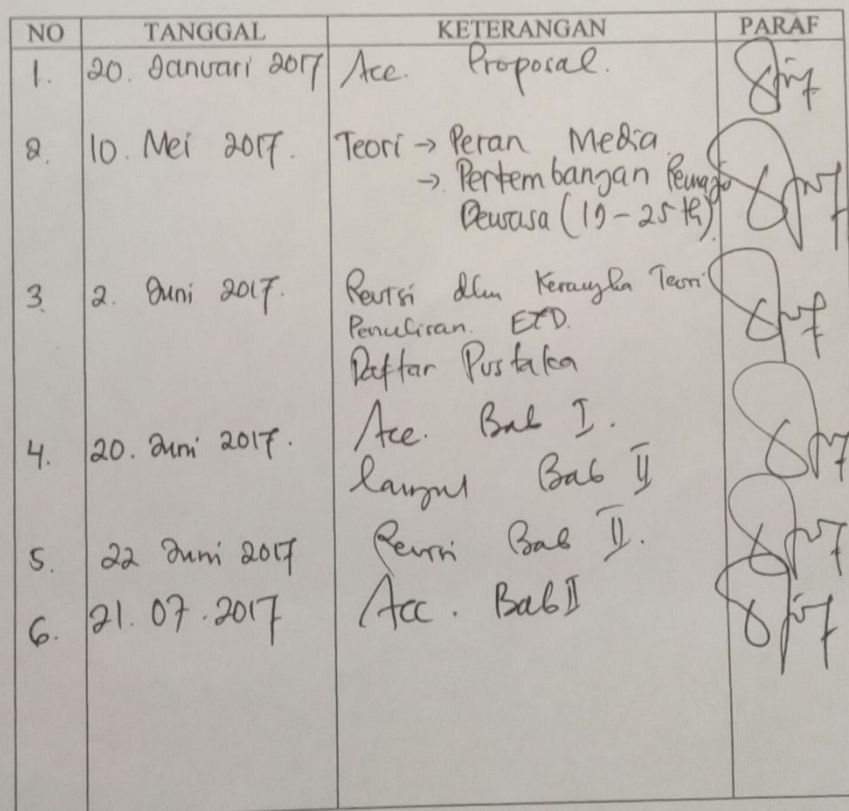 NO TANGGAL KETERANGAN PARAF
1. 20. Januari 2017 Acc. Proposal.
2. 10. Mei 2017. Teori → Peran Media
→ Perkembangan Remaja
Dewasa (19-25 th)
3. 2. Juni 2017. Revisi dlm Kerangka Teori
Penulisan. EYD.
Daftar Pustaka
4. 20. Juni 2017. Acc. Bab I.
lanjut Bab II
5. 22 Juni 2017 Revisi Bab II.
6. 21.07.2017 Acc. Bab II